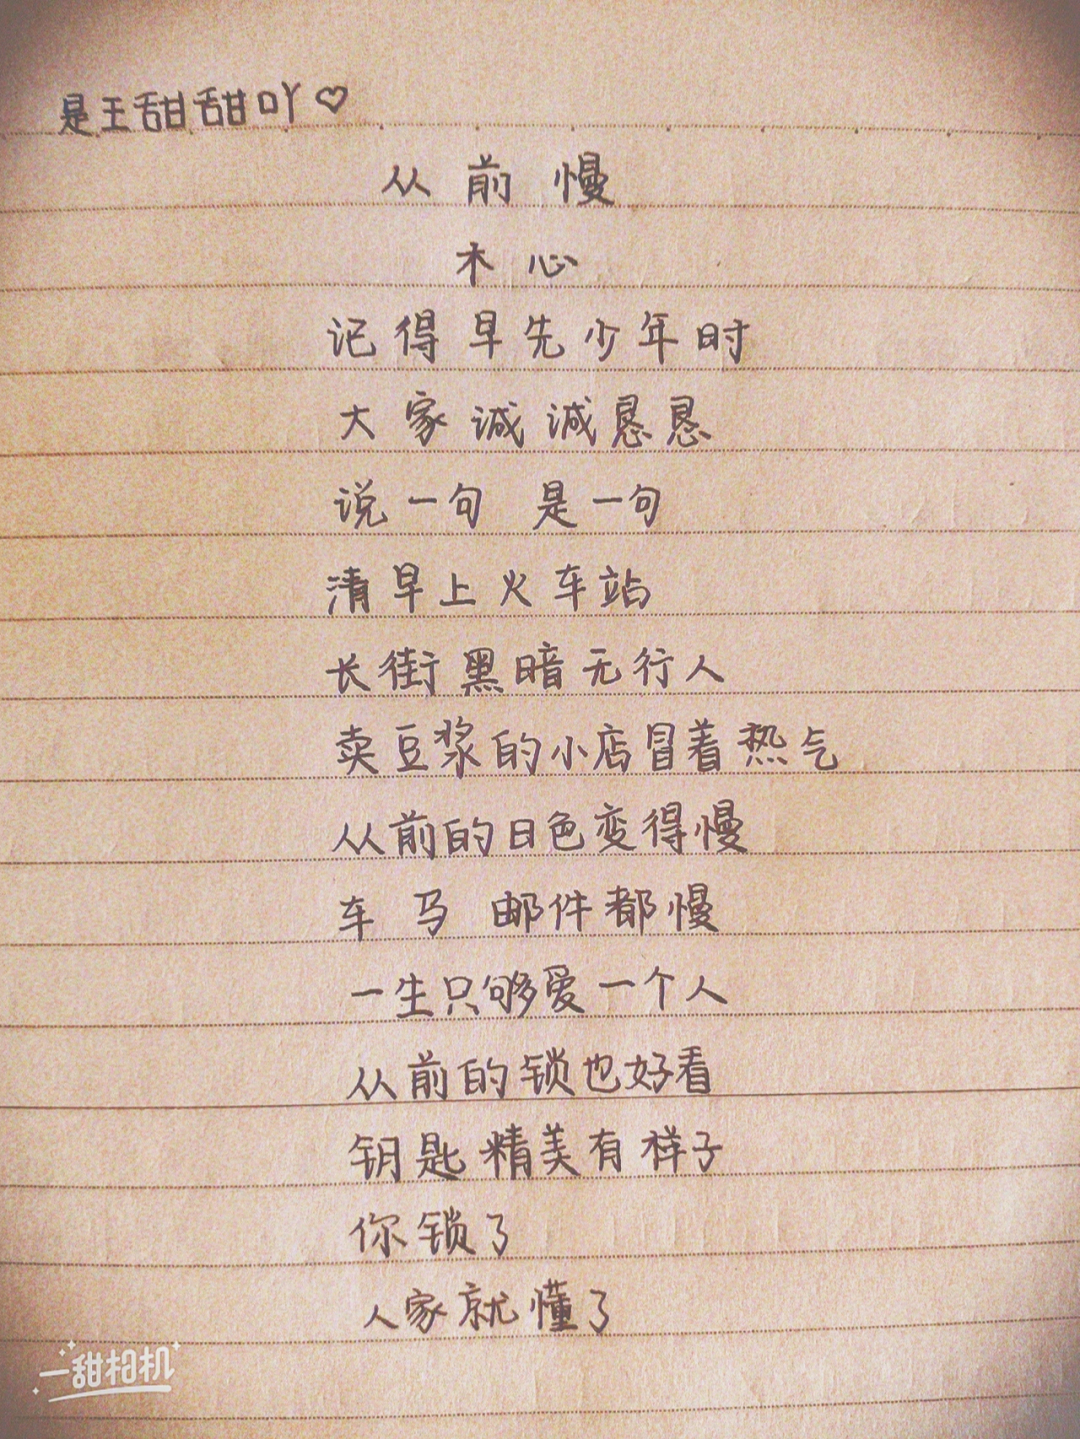 是王甜甜吖♡
从前慢
木心
记得早先少年时
大家诚诚恳恳
说一句 是一句
清早上火车站
长街黑暗无行人
卖豆浆的小店冒着热气
从前的日色变得慢
车 马 邮件都慢
一生只够爱一个人
从前的锁也好看
钥匙精美有样子
你锁了
人家就懂了
一甜相机